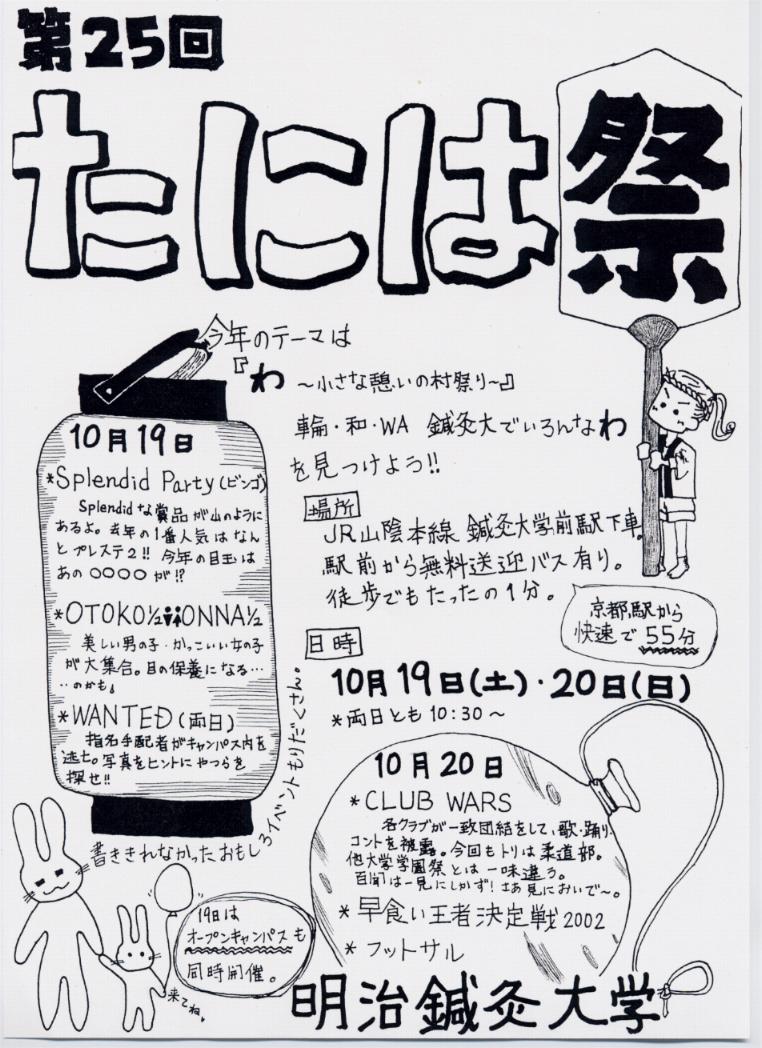 第25回
たには祭
今年のテーマは
『わ ～小さな憩いの村祭り～』
輪・和・WA 鍼灸大でいろんなわ
を見つけよう!!
場所
JR山陰本線 鍼灸大学前駅下車。
駅前から無料送迎バス有り。
徒歩でもたったの1分。
京都駅から
快速で55分
日時
10月19日(土)・20日(日)
*両日とも10:30～
10月19日
*Splendid Party(ビンゴ)
Splendidな賞品が山のように
あるよ。去年の1番人気はなん
とプレステ2!! 今年の目玉は
あの○○○○が!?
*OTOKO½ONNA½
美しい男の子・かっこいい女の子
が大集合。目の保養になる……
‥のかも。
*WANTED(両日)
指名手配者がキャンパス内を
逃亡。写真をヒントにやつらを
探せ!!
書ききれなかったおもしろイベントもりだくさん。
10月20日
*CLUB WARS
各クラブが一致団結をして、歌・踊り、
コントを披露。今回もトリは柔道部。
他大学学園祭とは一味違う。
百聞は一見にしかず!さあ見においで～。
*早食い王者決定戦2002
*フットサル
19日は
オープンキャンパスも
同時開催。
来てね。
明治鍼灸大学